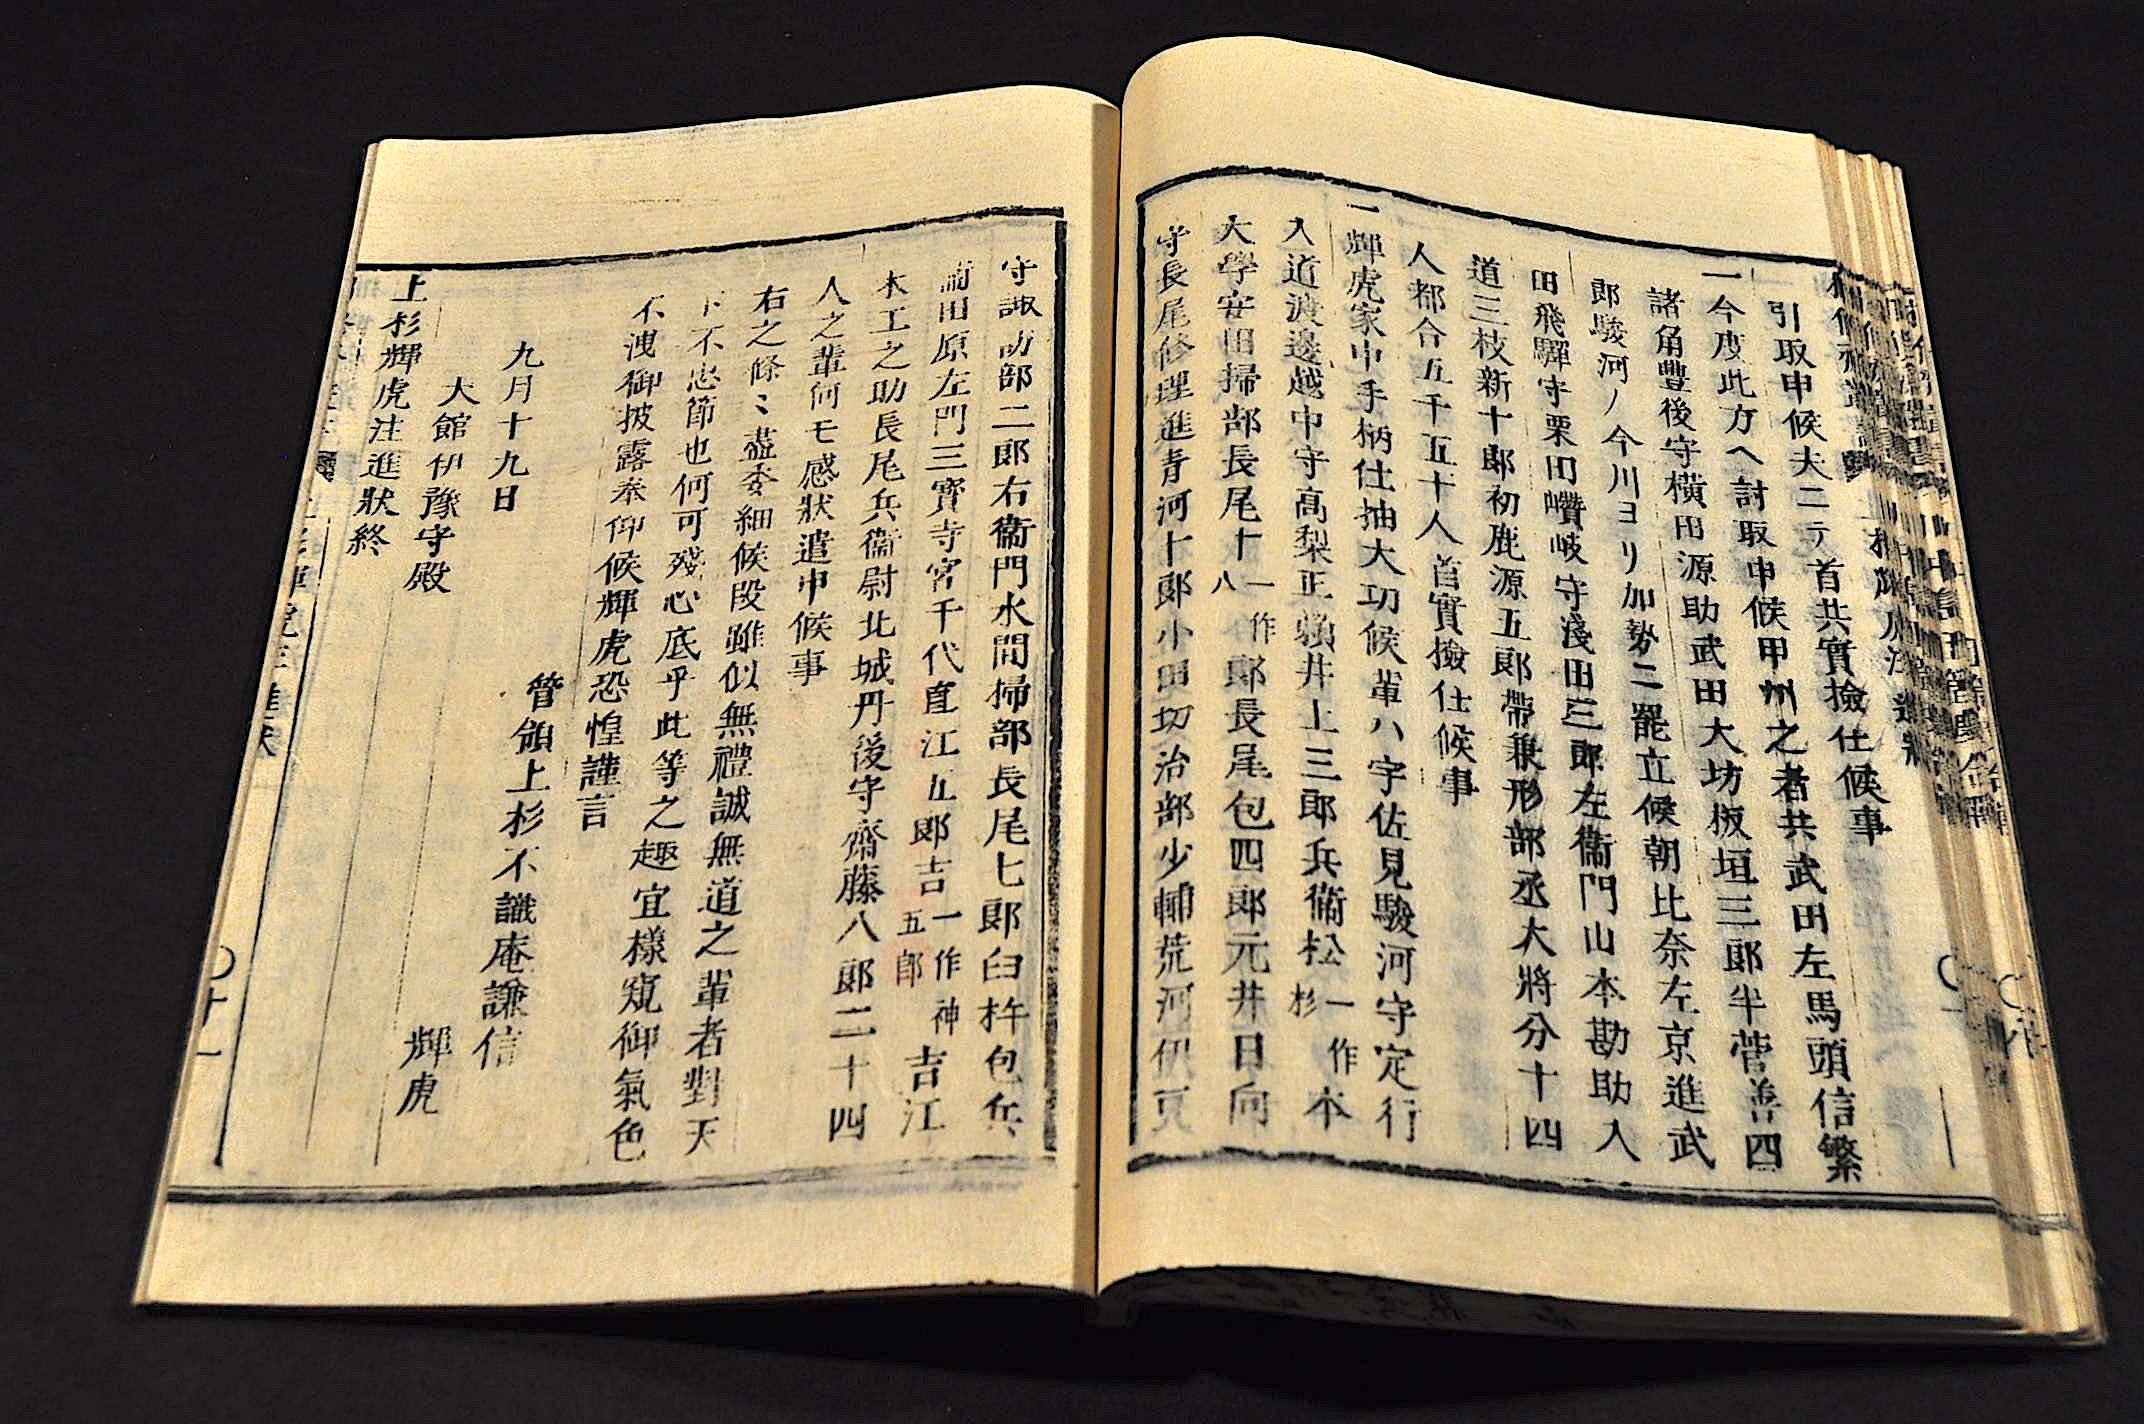 引取申候夫ニテ首共實撿仕候事
一今度此方ヘ討取申候甲州之者共武田左馬頭信繁
諸角豊後守横田源助武田大坊板垣三郎半菅善四
郎駿河ノ今川ヨリ加勢ニ罷立候朝比奈左京進武
田飛驒守栗田讃岐守淺田三郎左衞門山本勘助入
道三枝新十郎初鹿源五郎帶兼形部丞大將分十四
人都合五千五十人首實撿仕候事
一輝虎家中手柄仕抽大功候輩ハ宇佐見駿河守定行
入道渡邊越中守高梨正頼井上三郎兵衞松一作杉本
大學安田掃部長尾十一作八郎長尾包四郎元井日向
守長尾修理進青河十郎小田切治部少輔荒河伊豆
守諏訪部二郎右衞門水間掃部長尾七郎臼杵包兵
蒲田原左門三寳寺宮千代直江五郎吉一作神五郎吉江
木工之助長尾兵衞尉北城丹後守齋藤八郎二十四
人之輩何モ感狀遣申候事
右之條〻盡委細候段雖似無禮誠無道之輩者對天
下不忠節也何可殘心底乎此等之趣宜樣窺御氣色
不洩御披露奉仰候輝虎恐惶謹言
管領上杉不識庵謙信
九月十九日
輝虎
大館伊豫守殿
上杉輝虎注進狀終
〇十一